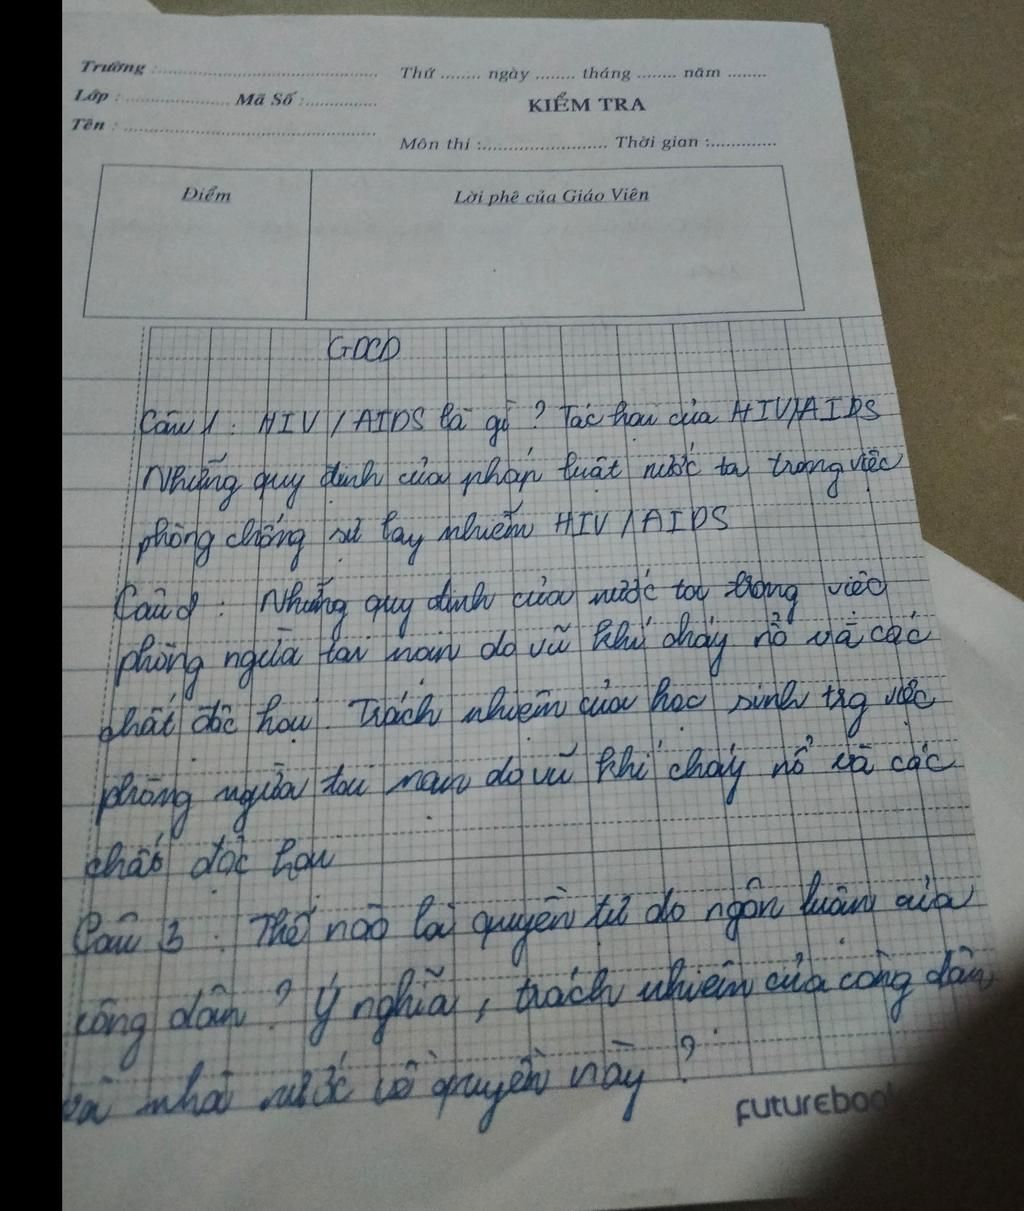 Trường :
Thứ ........ ngày ........ tháng ........ năm ........
Lớp : .................... Mã Số :..............
KIỂM TRA
Tên :
Môn thi :......................... Thời gian :.............
Điểm
Lời phê của Giáo Viên
GDCD
Câu 1 : HIV / AIDS là gì ? Tác hại của HIV/AIDS
Những quy định của pháp luật nước ta trong việc
phòng chống sự lây nhiễm HIV / AIDS
Câu 2 : Những quy định của nước ta trong việc
phòng ngừa tai nạn do vũ khí cháy nổ và các
chất độc hại. Trách nhiệm của học sinh trg việc
phòng ngừa tai nạn do vũ khí cháy nổ và các
chất độc hại
Câu 3 : Thế nào là quyền tự do ngôn luận của
công dân ? Ý nghĩa , trách nhiệm của công dân
và nhà nước về quyền này ?